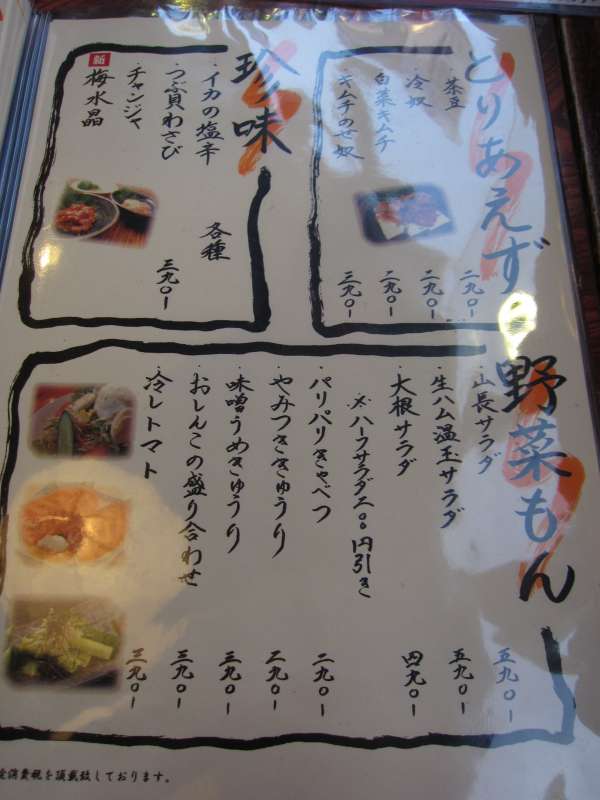 とりあえず
茶豆 二九〇-
冷奴 二九〇-
白菜キムチ 二九〇-
キムチのせ奴 三九〇-
珍味
・イカの塩辛
・つぶ貝わさび
・チャンジャ
新 梅水晶
各種 三九〇-
野菜もん
・山長サラダ 五九〇-
・生ハム温玉サラダ 五九〇-
・大根サラダ 四九〇-
※ハーフサラダ二〇〇円引き
・パリパリきゃべつ 二九〇-
・やみつききゅうり 二九〇-
・味噌うめきゅうり 三九〇-
・おしんこの盛り合わせ 三九〇-
・冷しトマト 三九〇-
消費税を頂戴致しております。